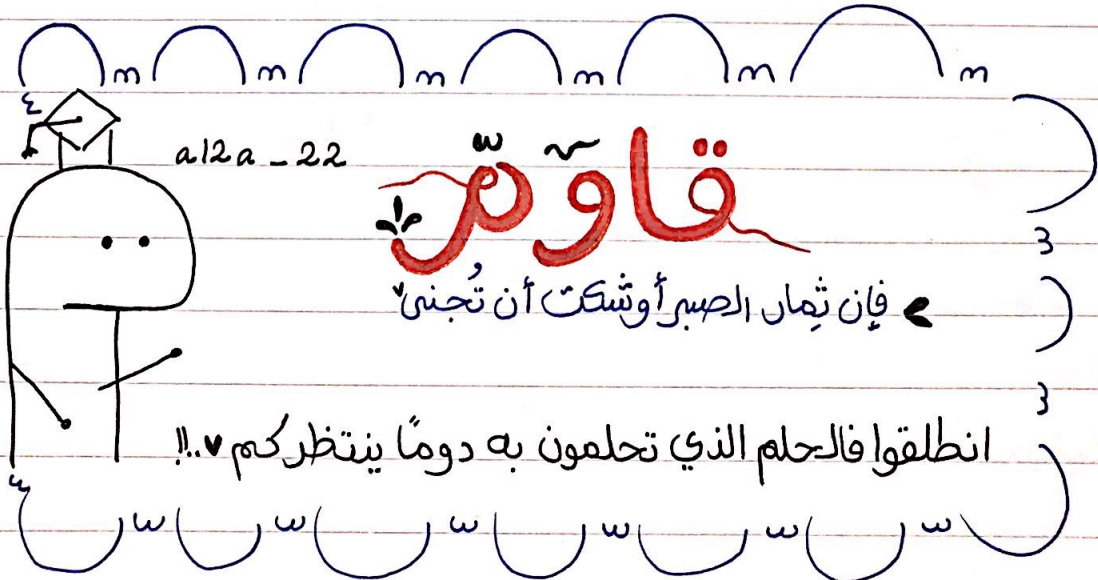 a12a _ 22
قاوم
فإن ثِمار الصبر أوشكت أن تُجنى
انطلقوا فالحلم الذي تحلمون به دومًا ينتظركم ..!!